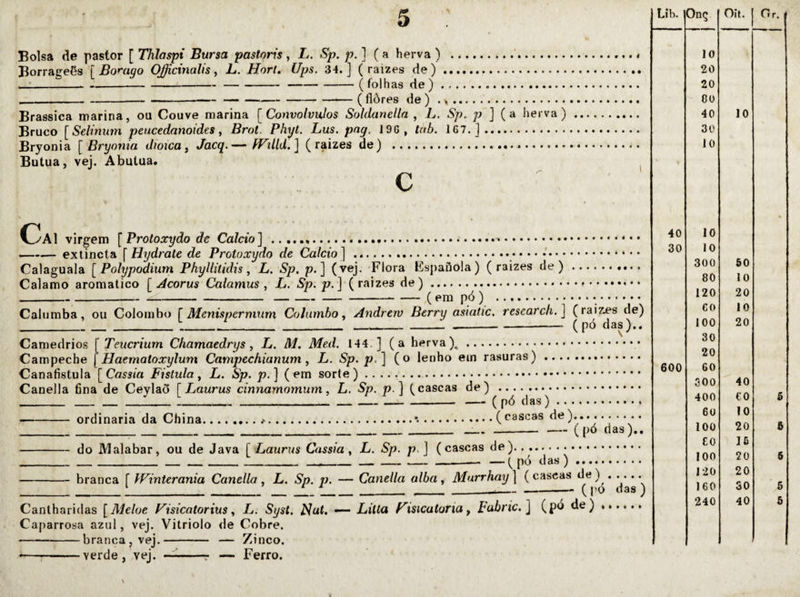 5
Lib. Onç Oit. Gr.
Bolsa de pastor [ Thlaspi Bursa pastoris, L. Sp. p. ] ( a herva ) ........ 10
Borrageẽs [ Borago Officinalis, L. Hort. Ups. 34. ] ( raizes de ) ........ 20
——— ( folhas de ) ........ 20
——— ( flôres de ) ........ 80
Brassica marina, ou Couve marina [ Convolvulos Soldanella, L. Sp. p ] ( a herva ) ........ 40 10
Bruco [ Selinum peucedanoides, Brot. Phyt. Lus. pag. 196, tab. 167. ] ........ 30
Bryonia [ Bryonia dioica, Jacq. — Willd. ] ( raizes de ) ........ 10
Butua, vej. Abutua.
C
CAl virgem [ Protoxydo de Calcio ] ........ 40 10
——— extincta [ Hydrate de Protoxydo de Calcio ] ........ 30 10
Calaguala [ Polypodium Phyllitidis, L. Sp. p. ] ( vej. Flora Española ) ( raizes de ) ........ 300 50
Calamo aromatico [ Acorus Calamus, L. Sp. p. ] ( raizes de ) ........ 80 10
——— ( em pó ) ........ 120 20
Calumba, ou Colombo [ Menispermum Columbo, Andrew Berry asiatic. research. ] ( raizes de) 60 10
——— ( pó das ).. 100 20
Camedrios [ Teucrium Chamaedrys, L. M. Med. 144. ] ( a herva ) ........ 30
Campeche [ Haematoxylum Campechianum, L. Sp. p. ] ( o lenho em rasuras ) ........ 20
Canafistula [ Cassia Fistula, L. Sp. p. ] ( em sorte ) ........ 600 60
Canella fina de Ceylaõ [ Laurus cinnamomum, L. Sp. p. ] ( cascas de ) ........ 300 40
——— ( pó das ) ........ 400 60 5
——— ordinaria da China ........ ( cascas de ) ........ 60 10
——— ( pó das ).. 100 20 5
——— do Malabar, ou de Java [ Laurus Cassia, L. Sp. p. ] ( cascas de ) ........ 80 15
——— ( pó das ) ........ 100 20 5
——— branca [ Winterania Canella, L. Sp. p. — Canella alba, Murrhay ] ( cascas de ) ..... 120 20
——— ( pó das ) 160 30 5
Cantharidas [ Meloe Visicatorius, L. Syst. Nat. — Litta Visicatoria, Fabric. ] ( pó de ) ...... 240 40 5
Caparrosa azul, vej. Vitriolo de Cobre.
——— branca, vej. ——— — Zinco.
——— verde, vej. ——— — Ferro.